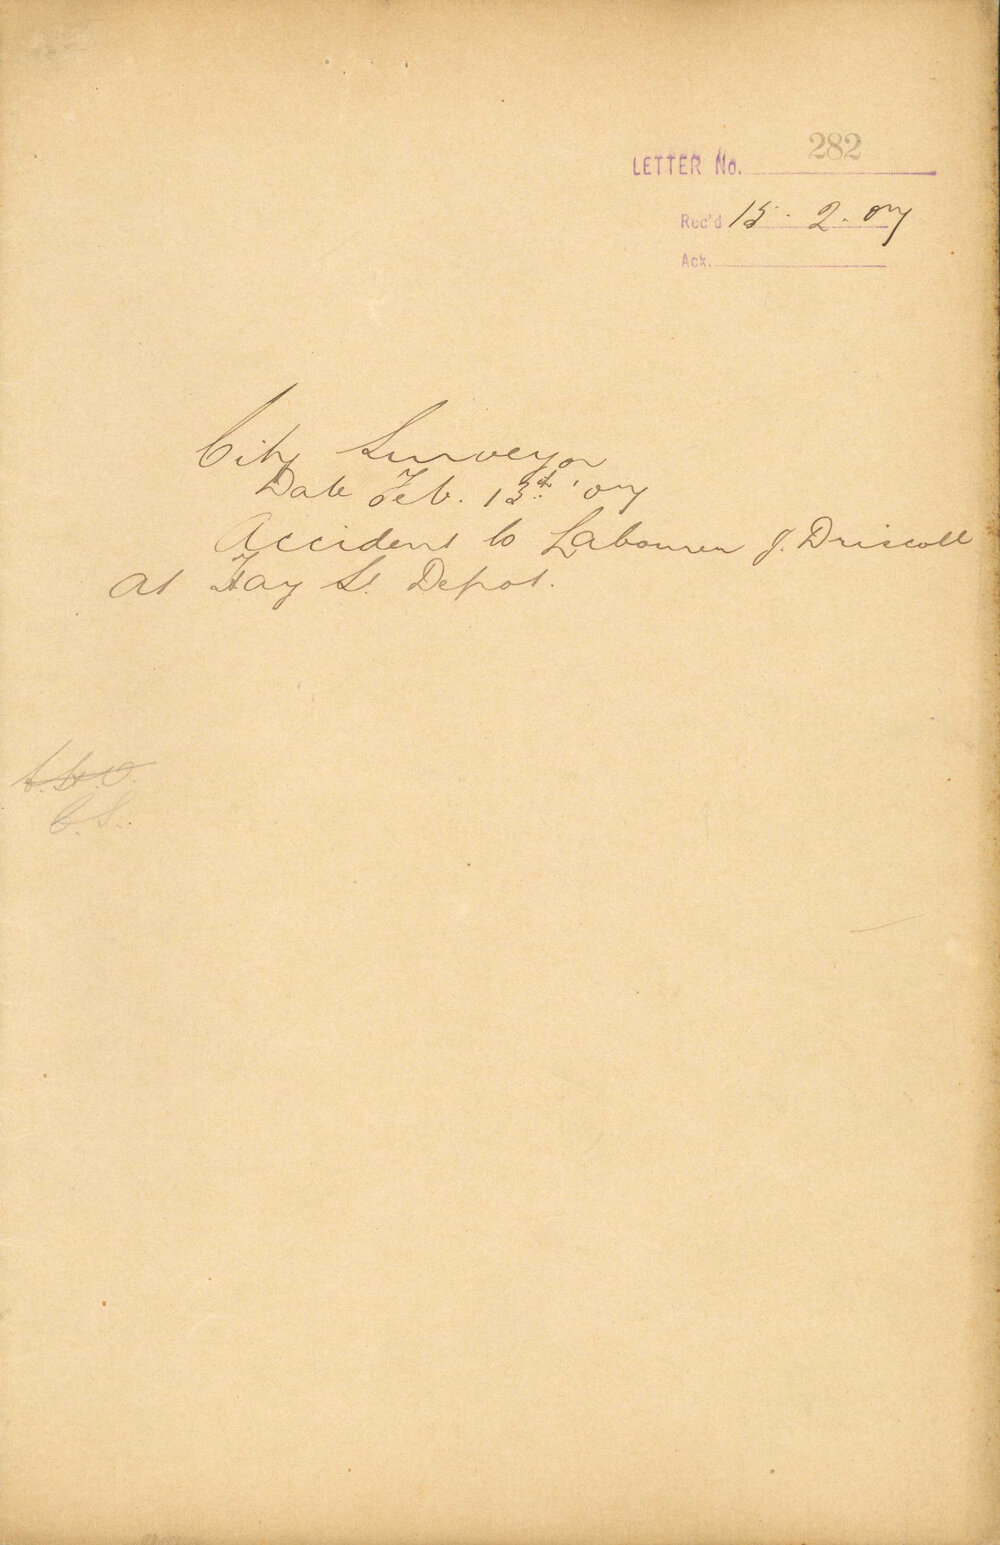 LETTER No. 282
Rec'd 15. 2. 07
Ack.
City Surveyor
Date Feb. 13th '07
Accident to Labourer J. Driscoll
at Hay St. Depot.
C.S.